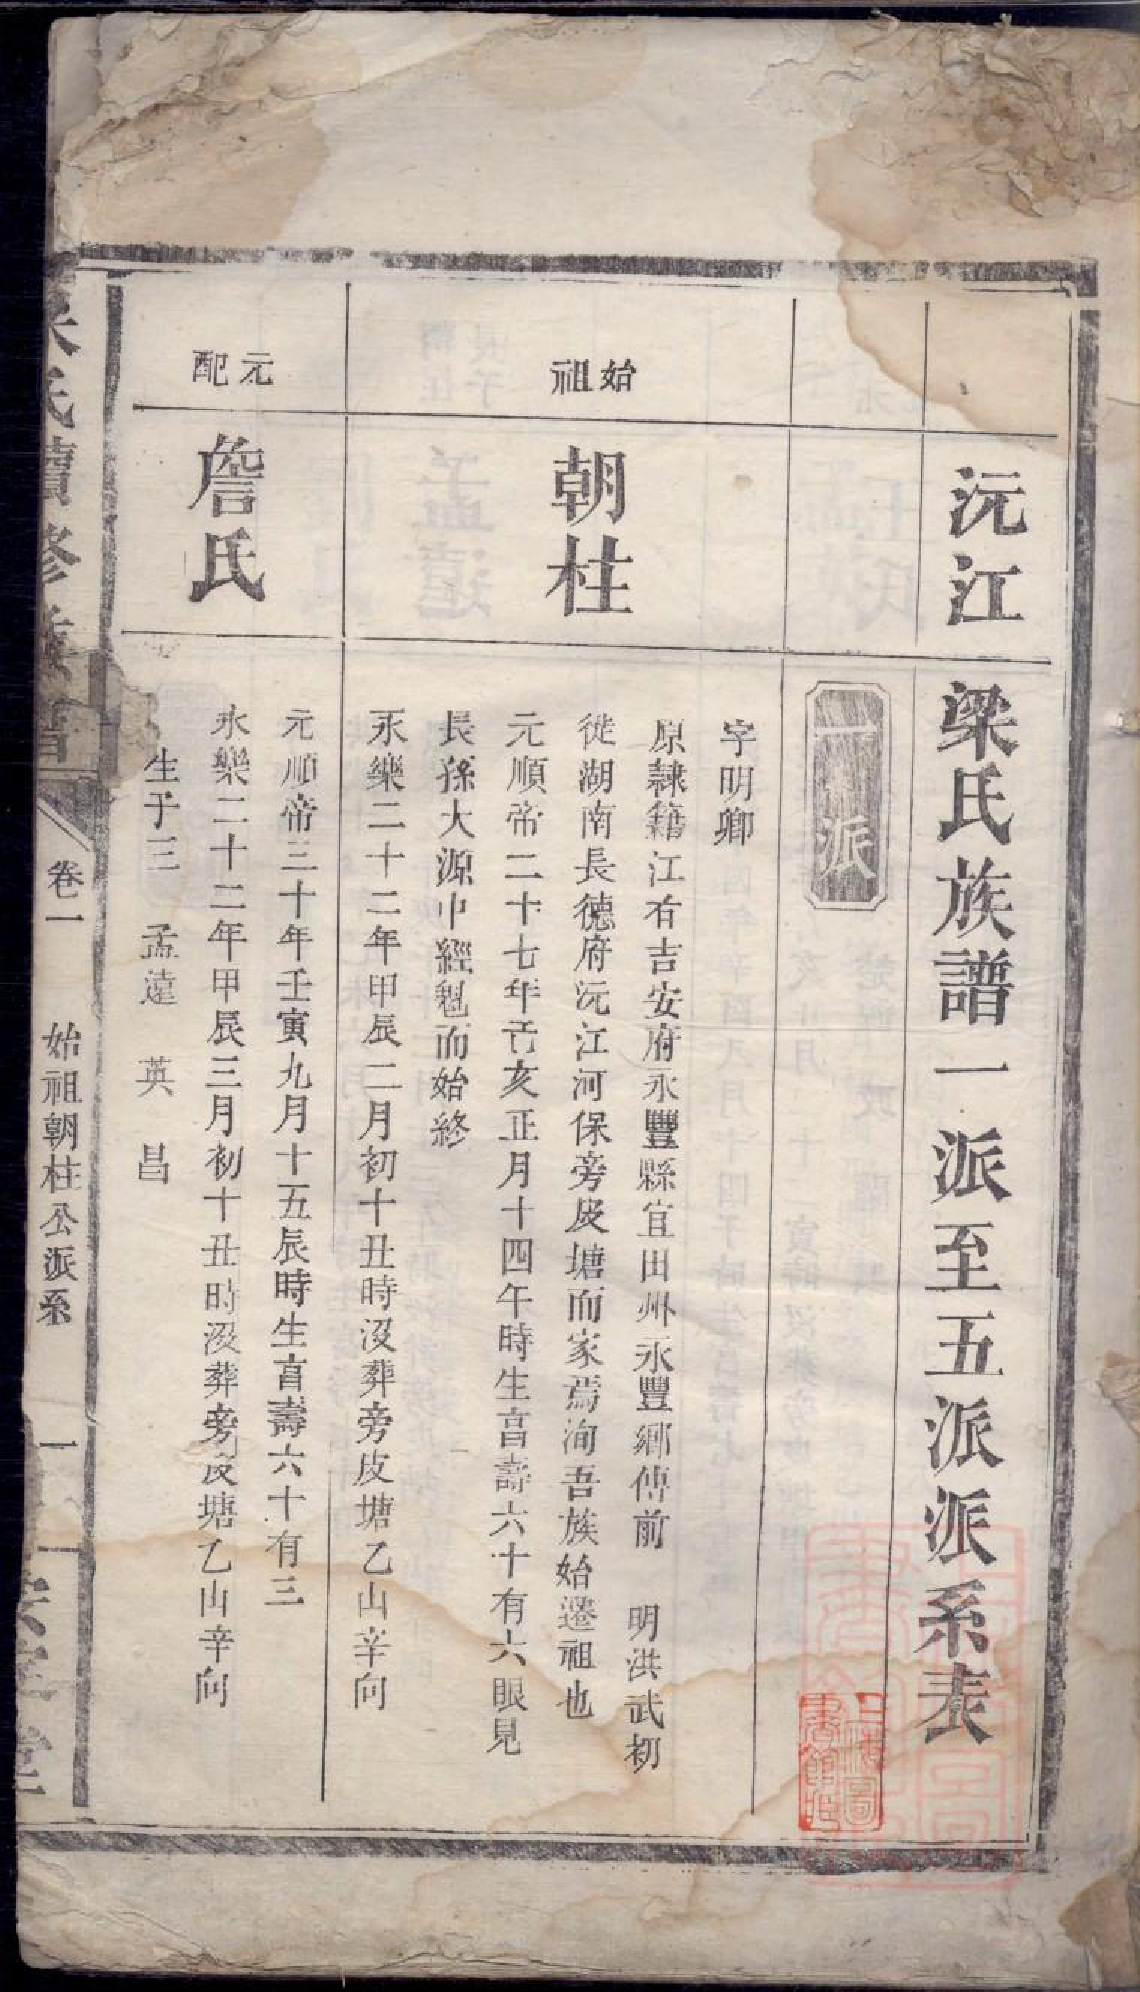 沅江梁氏族譜一派至五派派系表
一派
始祖
朝柱
字明卿
原隸籍江右吉安府永豐縣宜田州永豐鄉傅前 明洪武初
徙湖南長德府沅江河保旁皮塘而家焉洵吾族始遷祖也
元順帝二十七年己亥正月十四午時生亯壽六十有六眼見
長孫大源中經魁而始終
永樂二十二年甲辰二月初十丑時沒葬旁皮塘乙山辛向
元配
詹氏
元順帝三十年壬寅九月十五辰時生亯壽六十有三
永樂二十二年甲辰三月初十丑時沒葬旁皮塘乙山辛向
生子三 孟遠 英 昌
梁氏續修族譜
卷一
始祖朝柱公派系
一
堂
上海圖書館藏